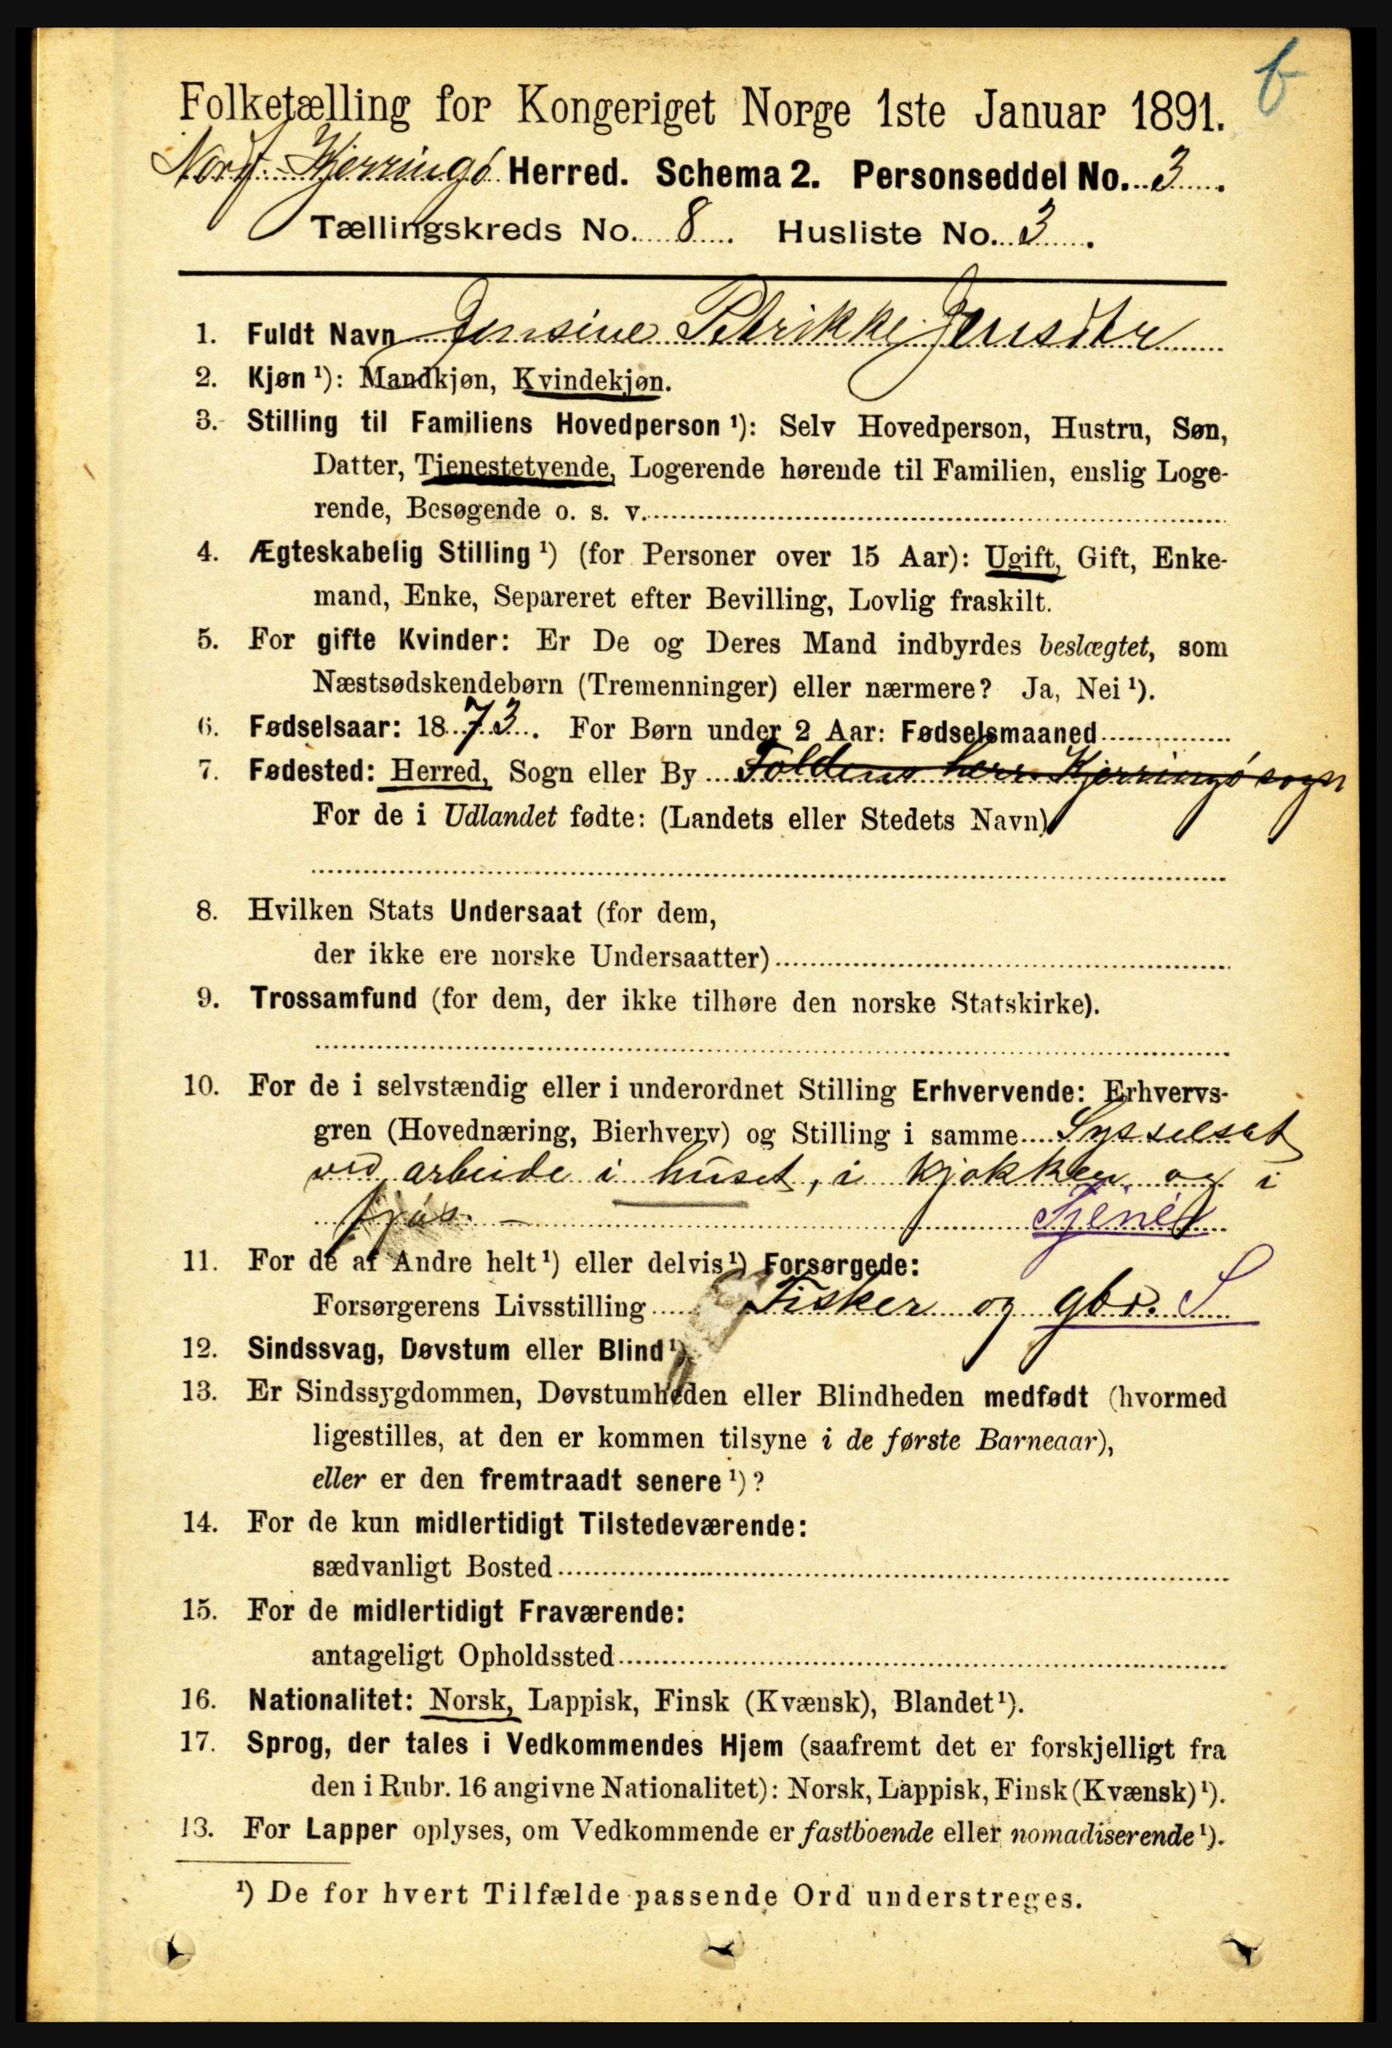 b
Folketælling for Kongeriget Norge 1ste Januar 1891.
Nordf. Kjerringø Herred. Schema 2. Personseddel No. 3.
Tællingskreds No. 8. Husliste No. 3.
1. Fuldt Navn Jensine Petrikke Jensdtr
2. Kjøn ¹): Mandkjøn, Kvindekjøn.
3. Stilling til Familiens Hovedperson ¹): Selv Hovedperson, Hustru, Søn,
Datter, Tjenestetyende, Logerende hørende til Familien, enslig Loge-
rende, Besøgende o. s. v.
4. Ægteskabelig Stilling ¹) (for Personer over 15 Aar): Ugift, Gift, Enke-
mand, Enke, Separeret efter Bevilling, Lovlig fraskilt.
5. For gifte Kvinder: Er De og Deres Mand indbyrdes beslægtet, som
Næstsødskendebørn (Tremenninger) eller nærmere? Ja, Nei ¹).
6. Fødselsaar: 1873. For Børn under 2 Aar: Fødselsmaaned
7. Fødested: Herred, Sogn eller By Foldens herr. Kjerringø sogn
For de i Udlandet fødte: (Landets eller Stedets Navn)
8. Hvilken Stats Undersaat (for dem,
der ikke ere norske Undersaatter)
9. Trossamfund (for dem, der ikke tilhøre den norske Statskirke).
10. For de i selvstændig eller i underordnet Stilling Erhvervende: Erhvervs-
gren (Hovednæring, Bierhverv) og Stilling i samme Sysselsat
ved arbeide i huset, i kjøkken og i
fjøs. – Tjener
11. For de af Andre helt ¹) eller delvis ¹) Forsørgede:
Forsørgerens Livsstilling Fisker og gbr. S
12. Sindssvag, Døvstum eller Blind ¹).
13. Er Sindssygdommen, Døvstumheden eller Blindheden medfødt (hvormed
ligestilles, at den er kommen tilsyne i de første Barneaar),
eller er den fremtraadt senere ¹)?
14. For de kun midlertidigt Tilstedeværende:
sædvanligt Bosted
15. For de midlertidigt Fraværende:
antageligt Opholdssted
16. Nationalitet: Norsk, Lappisk, Finsk (Kvænsk), Blandet ¹).
17. Sprog, der tales i Vedkommendes Hjem (saafremt det er forskjelligt fra
den i Rubr. 16 angivne Nationalitet): Norsk, Lappisk, Finsk (Kvænsk) ¹).
13. For Lapper oplyses, om Vedkommende er fastboende eller nomadiserende ¹).
¹) De for hvert Tilfælde passende Ord understreges.